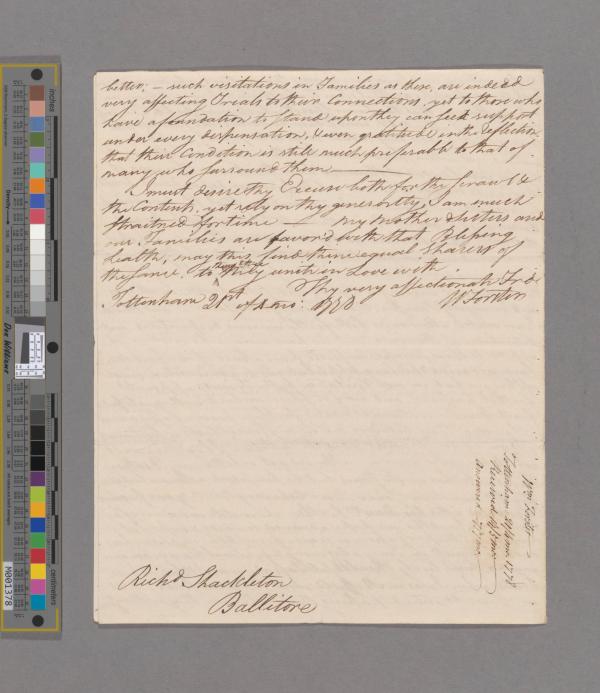 better; — such visitations in Families as these, are indeed
very affecting Trials to their Connections, yet to those who
have a foundation to stand upon they can feel support
under every dispensation, & even gratitude in the Reflection
that their Condition is still much preferable to that of
many who surround them
I must desire thy Excuse both for the Scrawl &
the Contents, yet rely on thy generosity, I am much
straitned for time — my Mother & Sisters and
our Families are favor'd with that Blessing
health, may this find thine equal Sharers of
the same. to
unite in Love with
Thy very affectionate Frd
Tottenham 21st of 4 mo: 1778
Wm Forster
Wm Forster
Tottenham 21/4mo 1778
Received
answered
Richd Shackleton
Ballitore
inches
centimeters
Don Williams
M001378